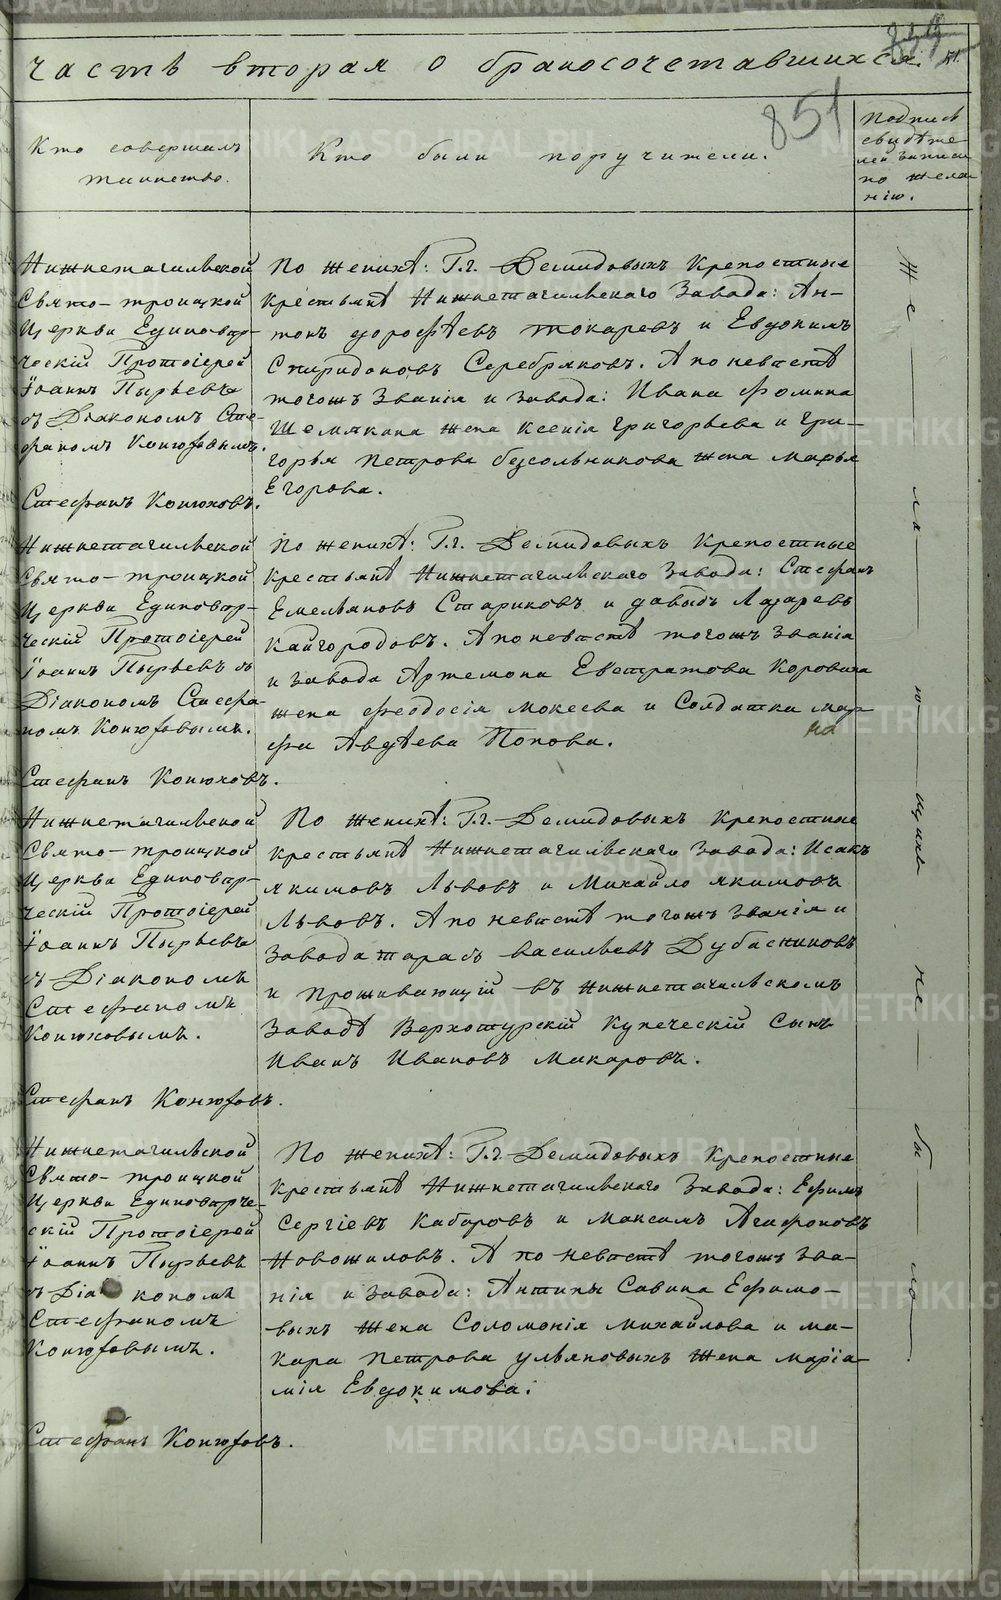 часть вторая о бракосочетавшихся.
851
Кто совершалъ
таинство.
Кто были поручители.
Подпись
свидѣте
лей записи
по жела
нію.
Нижнетагильской
Свято-троицкой
Церкви Единовѣр-
ческій Протоіерей
Іоаннъ Пырьевъ
съ Діакономъ Сте-
фаномъ Конюховымъ.
Стефанъ Конюховъ.
По женихѣ: Г.г. Демидовыхъ крепостные
крестьянѣ Нижнетагильскаго Завода: Ан-
тонъ дорофѣевъ токаревъ и Евдокимъ
Спиридоновъ Серебряковъ. А по невѣстѣ
тогожъ Званія и завода: Ивана фомина
Шемякина жена Ксенія григорьева и гри-
горья петрова безсольникова жена марья
Егорова.
Нижнетагильской
Свято-троицкой
Церкви Единовѣр-
ческій Протоіерей
Іоаннъ Пырьевъ съ
Діакономъ Стефа-
номъ Конюховымъ.
Стефанъ Конюховъ.
По женихѣ: Г.г. Демидовыхъ крепостные
крестьянѣ Нижнетагильскаго Завода: Стефанъ
Емельяновъ Стариковъ и давыдъ Лазаревъ
Кайгородовъ. А по невѣстѣ тогожъ званія
и завода Артемона Евстратова Коровина
жена феодосія мокеева и Солдатка мар-
фа Авдѣева Попова.
Нижнетагильской
Свято-троицкой
Церкви Единовѣр-
ческій Протоіерей
Іоаннъ Пырьевъ
съ Діакономъ
Стефаномъ
Конюховымъ.
Стефанъ Конюховъ.
По женихѣ: Г.г. Демидовыхъ крепостные
крестьянѣ Нижнетагильскаго Завода: Исакъ
якимовъ Львовъ и Михайло якимовъ
Львовъ. А по невѣстѣ тогожъ званія и
завода тарасъ васильевъ Дубасниковъ
и проживающій въ нижнетагильскомъ
Заводѣ Верхотурскій Купеческій Сынъ
Иванъ Ивановъ Макаровъ.
Нижнетагильской
Свято-троицкой
Церкви Единовѣрче-
скій Протоіерей
Іоаннъ Пырьевъ
съ Діакономъ
Стефаномъ
Конюховымъ.
Стефанъ Конюховъ.
По женихѣ: Г.г. Демидовыхъ крепостные
крестьянѣ Нижнетагильскаго Завода: Ефимъ
Сергіевъ Кабаровъ и Максимъ Агафоновъ
Новожиловъ. А по невѣстѣ тогожъ зва-
нія и завода: Антипы Савина Ефимо-
выхъ жена Соломонія михайлова и ма-
кара петрова ульяновыхъ жена маріа-
мія Евдокимова.
Же
ла
ю
щихъ
не
бы
ло.
METRIKI.GASO-URAL.RU